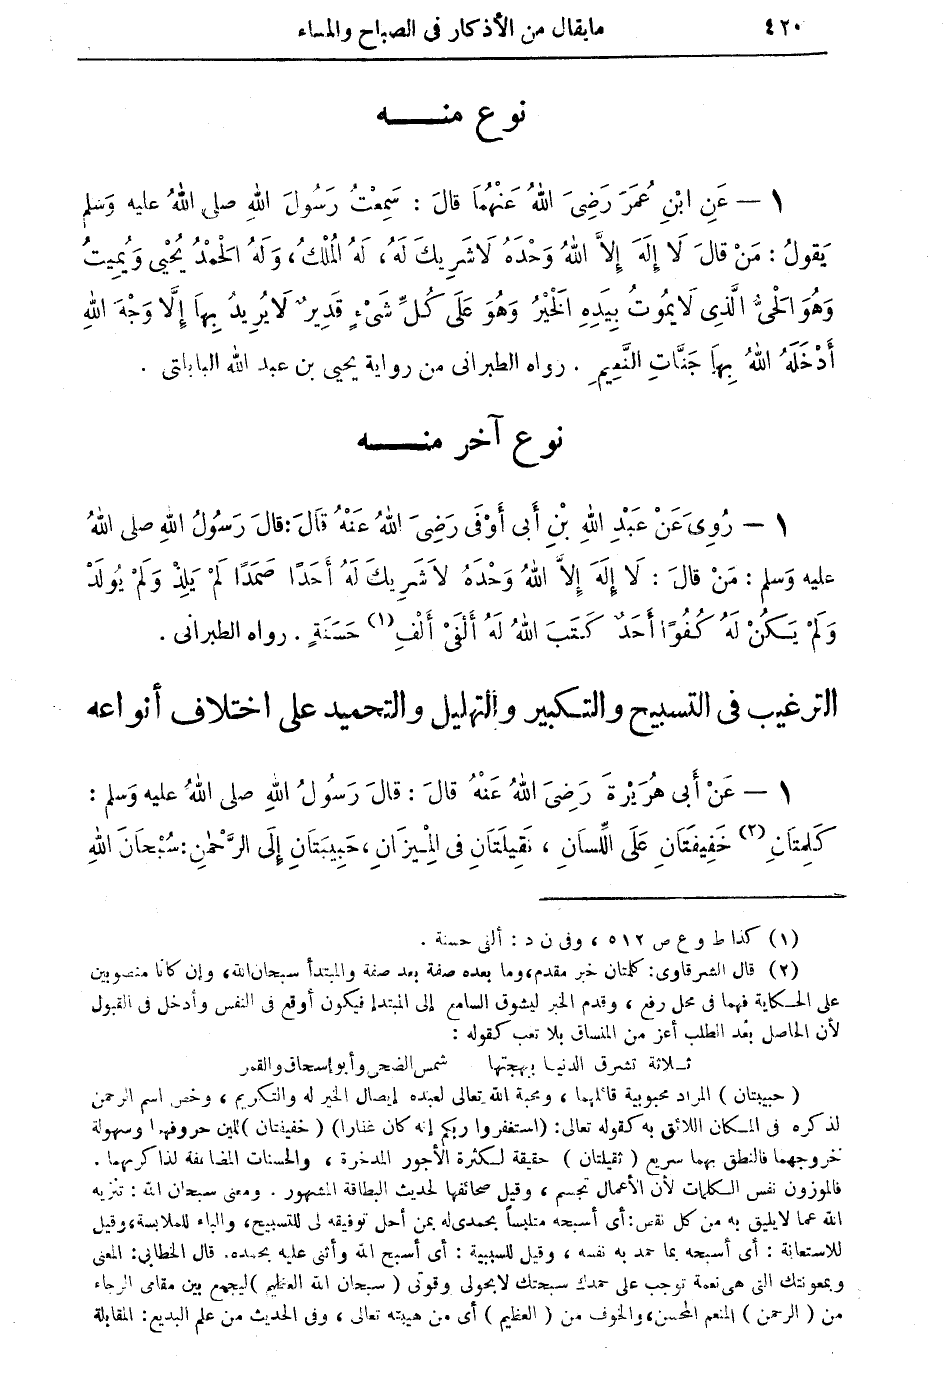 ٤٢٠ مايقال من الأذكار فى الصباح والمساء
نوع منـــه
١ — عَنِ ابْنِ عُمَرَ رَضِىَ اللهُ عَنْهُمَا قالَ : سَمِعْتُ رَسُولَ اللهِ صلى اللهُ عليه وَسَلم
يَقولُ : مَنْ قالَ لَا إِلَهَ إِلاَّ اللهُ وَحْدَهُ لَاشَرِيكَ لَهُ، لَهُ الْمُلْكُ، وَلَهُ الْحَمْدُ يُحْيِى وَيُمِيتُ
وَهُوَ الْحَىُّ الَّذِى لَايَمُوتُ بِيَدِهِ الْخَيْرُ وَهُوَ عَلَى كُلِّ شَىْءٍ قَدِيرٌ لَايُرِيدُ بِهاَ إِلَّا وَجْهَ اللهِ
أَدْخَلَهُ اللهُ بِهاَ جَنَّاتِ النَّعِيمِ . رواه الطبرانى من رواية يحيى بن عبد الله البابلتى .
نوع آخر منـــه
١ — رُوِىَ عَنْ عَبْدِ اللهِ بْنِ أَبى أَوْفَى رَضِىَ اللهُ عَنْهُ قَالَ : قالَ رَسُولُ اللهِ صلى اللهُ
عليه وَسلم : مَنْ قالَ : لَا إِلَهَ إِلاَّ اللهُ وَحْدَهُ لاَشَرِيكَ لَهُ أَحَدًا صَمَدًا لَمْ يَلِدْ وَلَمْ يُولَدْ
وَلَمْ يَكُنْ لَهُ كُفُوًا أَحَدٌ كَتَبَ اللهُ لَهُ أَلْفَىْ أَلْفِ(١) حَسَنَةٍ . رواه الطبرانى .
الترغيب فى التسبيح والتكبير والتهليل والتحميد على اختلاف أنواعه
١ — عَنْ أَبى هُرَيْرَةَ رَضِىَ اللهُ عَنْهُ قالَ : قالَ رَسُولُ اللهِ صلى اللهُ عليه وَسلم :
كَلِمَتَانِ(٢) خَفِيفَتَانِ عَلَى اللِّسانِ ، ثَقِيلَتَانِ فى الْمِيزَانِ، حَبِيبَتَانِ إِلَى الرَّحْمٰنِ : سُبْحَانَ اللهِ
(١) كذا ط و ع ص ٥١٢ ، وفى ن د : ألفى حسنة .
(٢) قال الشرقاوى: كلمتان خبر مقدم، وما بعده صفة بعد صفة والمبتدأ سبحان الله، وإن كانا منصوبين
على الحكاية فهما فى محل رفع ، وقدم الخبر ليشوق السامع إلى المبتدإ فيكون أوقع فى النفس وأدخل فى القبول
لأن الحاصل بعد الطلب أعز من المنساق بلا تعب كقوله :
ثلاثة تشرق الدنيا ببهجتها شمس الضحى وأبو إسحاق والقمر
( حبيبتان ) المراد محبوبية قائلهما ، ومحبة الله تعالى لعبده إيصال الخير له والتكريم ، وخص اسم الرحمن
لذكره فى المكان اللائق به كقوله تعالى: (استغفروا ربكم إنه كان غفارا) ( خفيفتان ) للين حروفهما وسهولة
خروجهما فالنطق بهما سريع ( ثقيلتان ) حقيقة لكثرة الأجور المدخرة ، والحسنات المضاعفة لذاكرهما .
فالموزون نفس الكلمات لأن الأعمال تجسم ، وقيل صحائفها لحديث البطاقة المشهور . ومعنى سبحان الله : تنزيه
الله عما لايليق به من كل نقص : أى أسبحه متلبساً بحمدى له من أجل توفيقه لى للتسبيح، والباء للملابسة، وقيل
للاستعانة : أى أسبحه بما حمد به نفسه ، وقيل للسببية : أى أسبح الله وأثنى عليه بحمده. قال الخطابى: المعنى
وبمعونتك التى هى نعمة توجب على حمدك سبحتك لابحولى وقوتى ( سبحان الله العظيم ) ليجمع بين مقامى الرجاء
من ( الرحمن ) المنعم المحسن، والخوف من ( العظيم ) أى من هيبته تعالى ، وفى الحديث من علم البديع: المقابلة